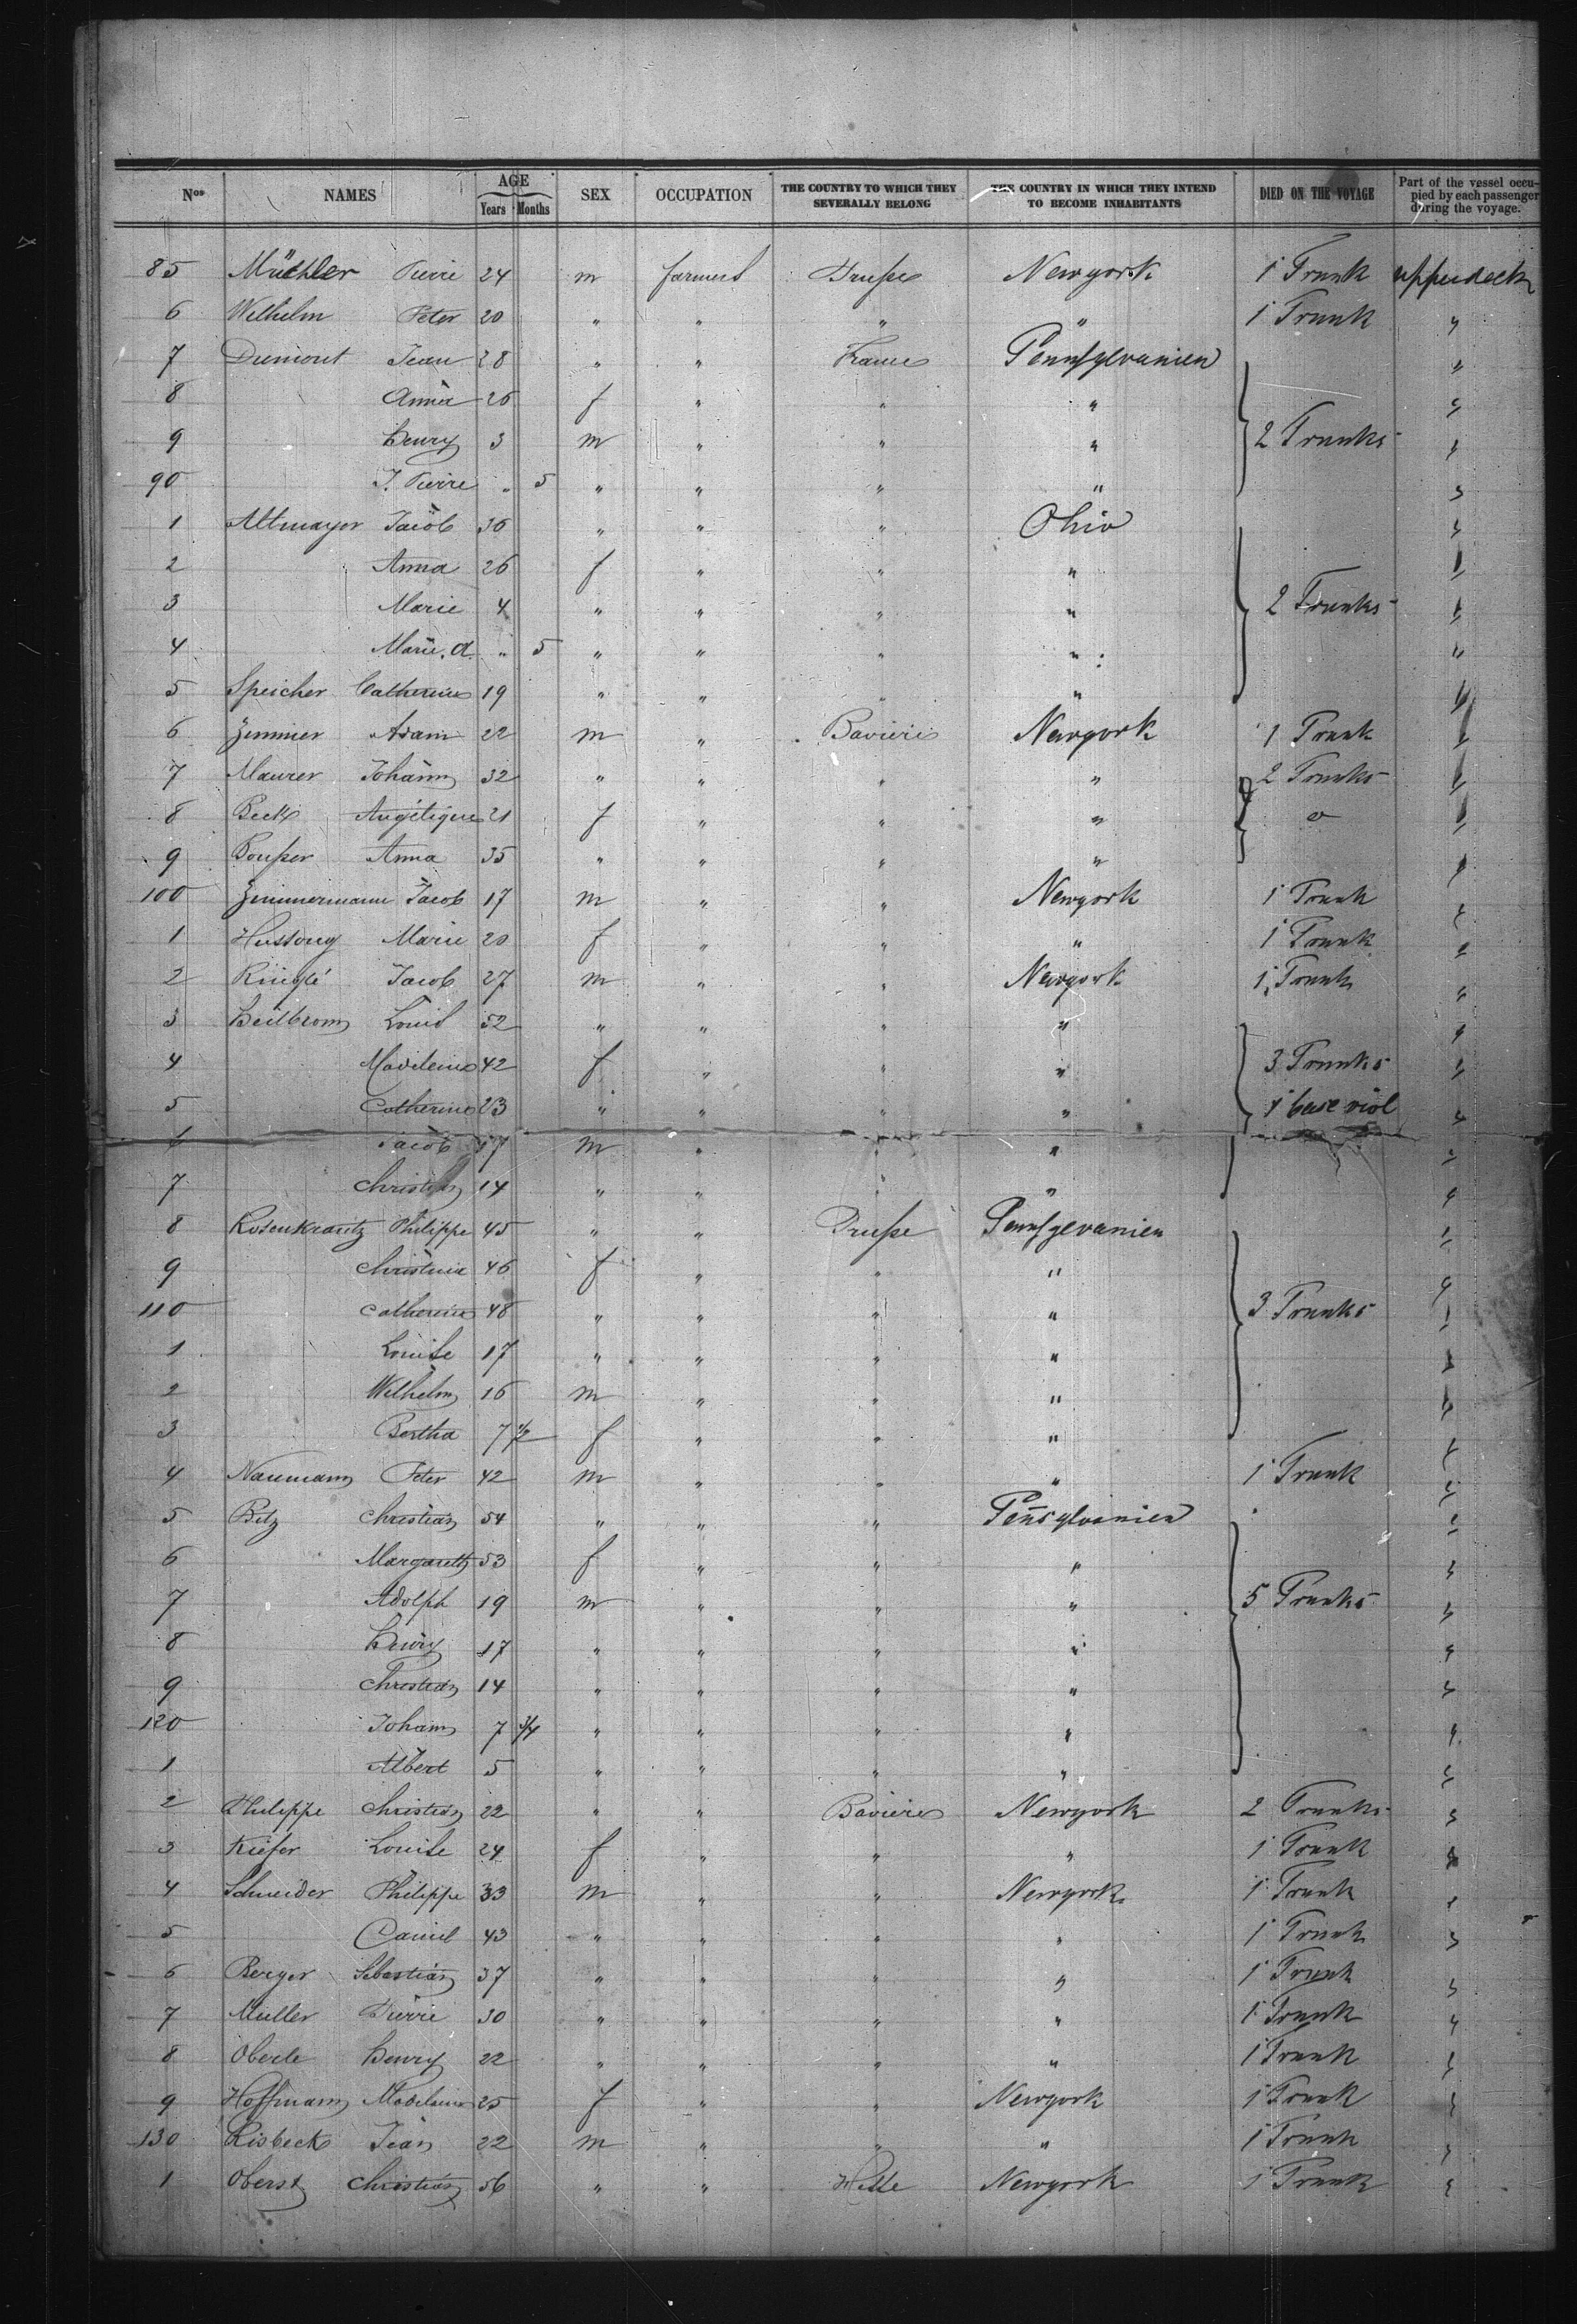 Nos NAMES AGE Years Months SEX OCCUPATION THE COUNTRY TO WHICH THEY SEVERALLY BELONG THE COUNTRY IN WHICH THEY INTEND TO BECOME INHABITANTS DIED ON THE VOYAGE Part of the vessel occupied by each passenger during the voyage.
85 Müchler Pierre 24 m farmers Prusse Newyork 1 Trunk upperdeck
6 Wilhelm Peter 20 " " " " 1 Trunk "
7 Dumont Jean 28 " " France Pennsylvanien "
8 Anna 26 f " " " "
9 Henry 3 m " " " 2 Trunks "
90 J. Pierre " 5 " " " " "
1 Altmayer Jacob 36 " " " Ohio "
2 Anna 26 f " " " "
3 Marie 4 " " " " 2 Trunks "
4 Marie. A. " 5 " " " " "
5 Speicher Catherine 19 " " " " "
6 Zimmer Adam 22 m " Baviere Newyork 1 Trunk "
7 Maurer Johann 32 " " " " 2 Trunks "
8 Beck Angélique 21 f " " " "
9 Anna 35 " " " " "
100 Zimmermann Jacob 17 m " " Newyork 1 Trunk "
1 Hussong Marie 20 f " " " 1 Trunk "
2 Ringlé Jacob 27 m " " Newyork 1 Trunk "
3 Heilbronn Louis 52 " " " " "
4 Madeleine 42 f " " " 3 Trunks "
5 Catherine 23 " " " " 1 base viol "
6 Jacob 17 m " " " "
7 Christian 14 " " " " "
8 Rosenkrantz Philippe 45 " " Prusse Pennsylvanien "
9 Christina 46 f " " " "
110 Catherine 48 " " " " 3 Trunks "
1 Louise 17 " " " " "
2 Wilhelm 16 m " " " "
3 Bertha 7 1/2 f " " " "
4 Naumann Peter 42 m " " " 1 Trunk "
5 Bitz Christian 54 " " " Pen̄sylvanien "
6 Margareth 53 f " " " "
7 Adolph 19 m " " " 5 Trunks "
8 Henry 17 " " " " "
9 Christian 14 " " " " "
120 Johann 7 3/4 " " " " "
1 Albert 5 " " " " "
2 Philippe Christian 22 " " Baviere Newyork 2 Trunks "
3 Kiefer Louise 24 f " " " 1 Trunk "
4 Schneider Philippe 33 m " " Newyork 1 Trunk "
5 Daniel 43 " " " " 1 Trunk "
6 Berger Sebastian 37 " " " " 1 Trunk "
7 Muller Pierre 30 " " " " 1 Trunk "
8 Oberle Henry 22 " " " " 1 Trunk "
9 Hoffmann Madeleine 25 f " " Newyork 1 Trunk "
130 Risbeck Jean 22 m " " " 1 Trunk "
1 Oberst Christian 56 " " Hesse Newyork 1 Trunk "